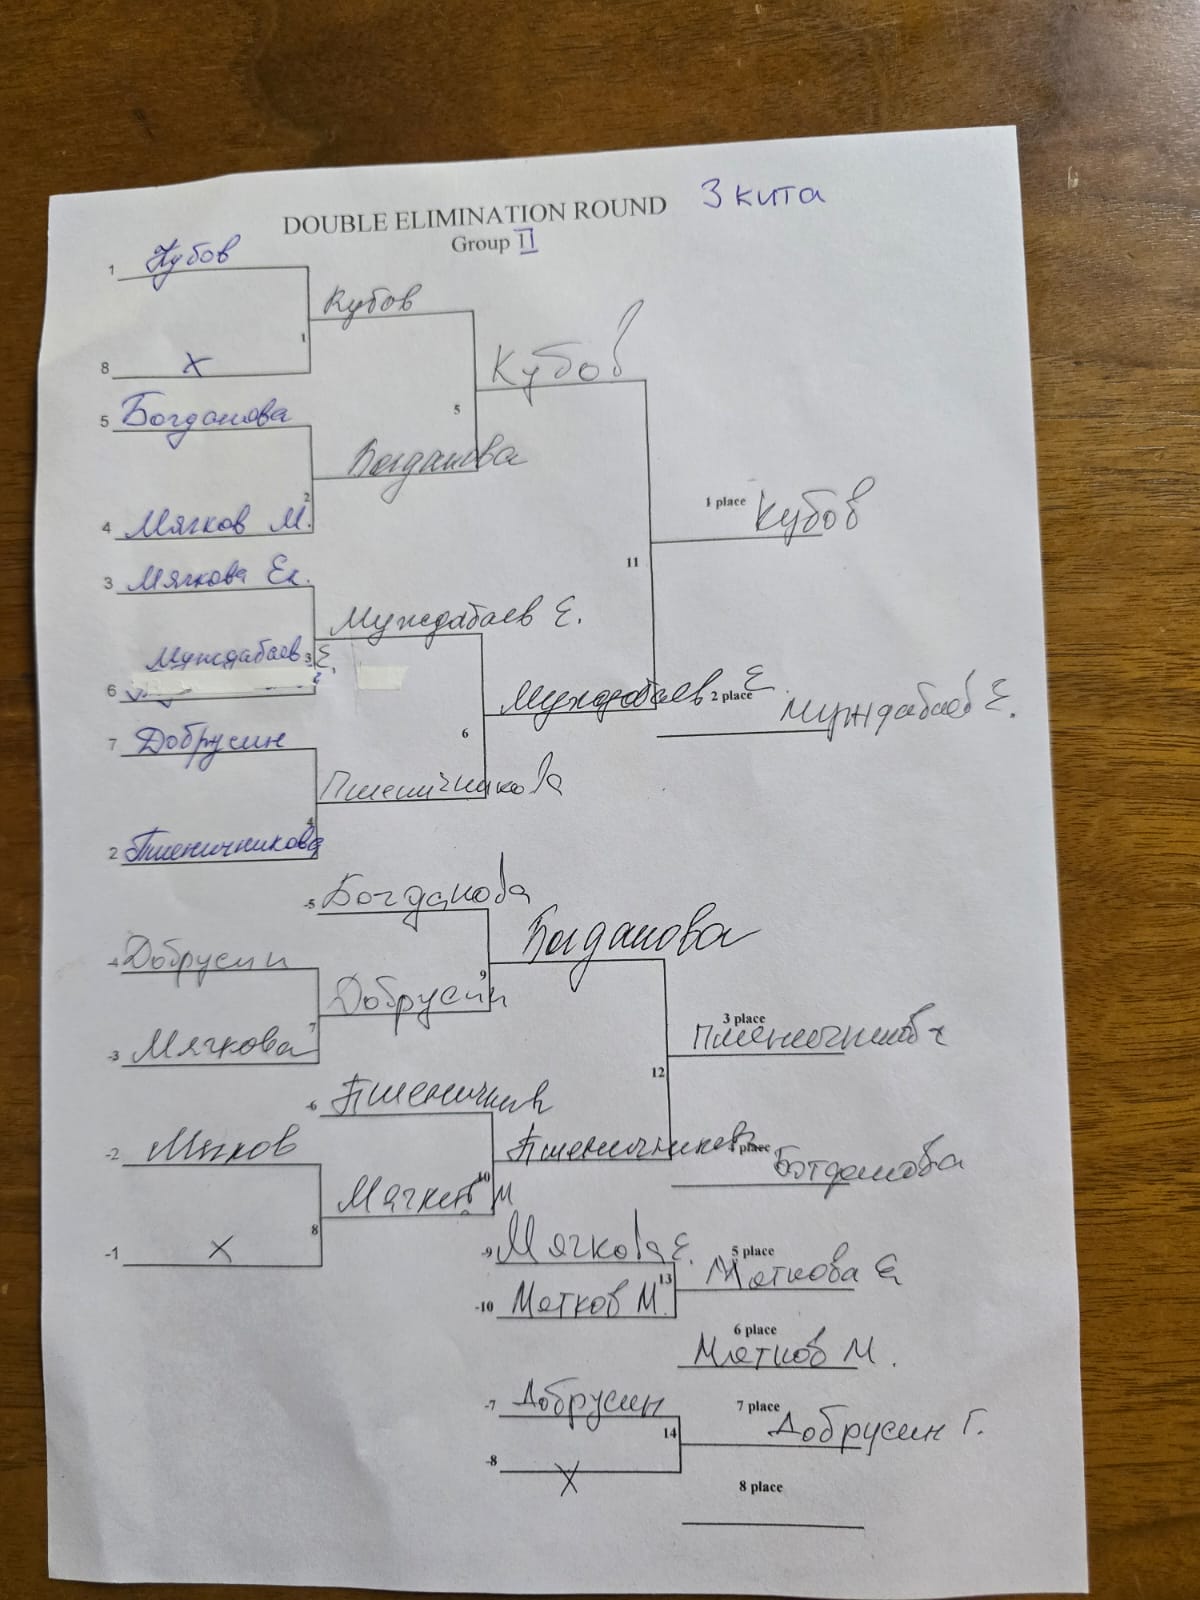 DOUBLE ELIMINATION ROUND 3 кита
Group II
1 Кубов
Кубов
1
8 X
Кубов
5
5 Богданова
Богданова
2
4 Мягков М.
1 place Кубов
11
3 Мягкова Ел.
Муждабаев Е.
Муждабаев Е.
3
6
Муждабаев Е.
2 place Муждабаев Е.
6
7 Добрусин
Пшеничникова
4
2 Пшеничникова
-5 Богданова
Богданова
9
-4 Добрусин
Добрусин
7
-3 Мягкова
3 place
12
-6
Пшеничникова
4 place Богданова
10
-2 Мягков
Мягков М
8
-1 X
-9 Мягкова Е.
13
5 place Мягкова Е
-10 Мягков М.
6 place
Мягков М.
-7 Добрусин
14
7 place Добрусин Г.
-8 X
8 place